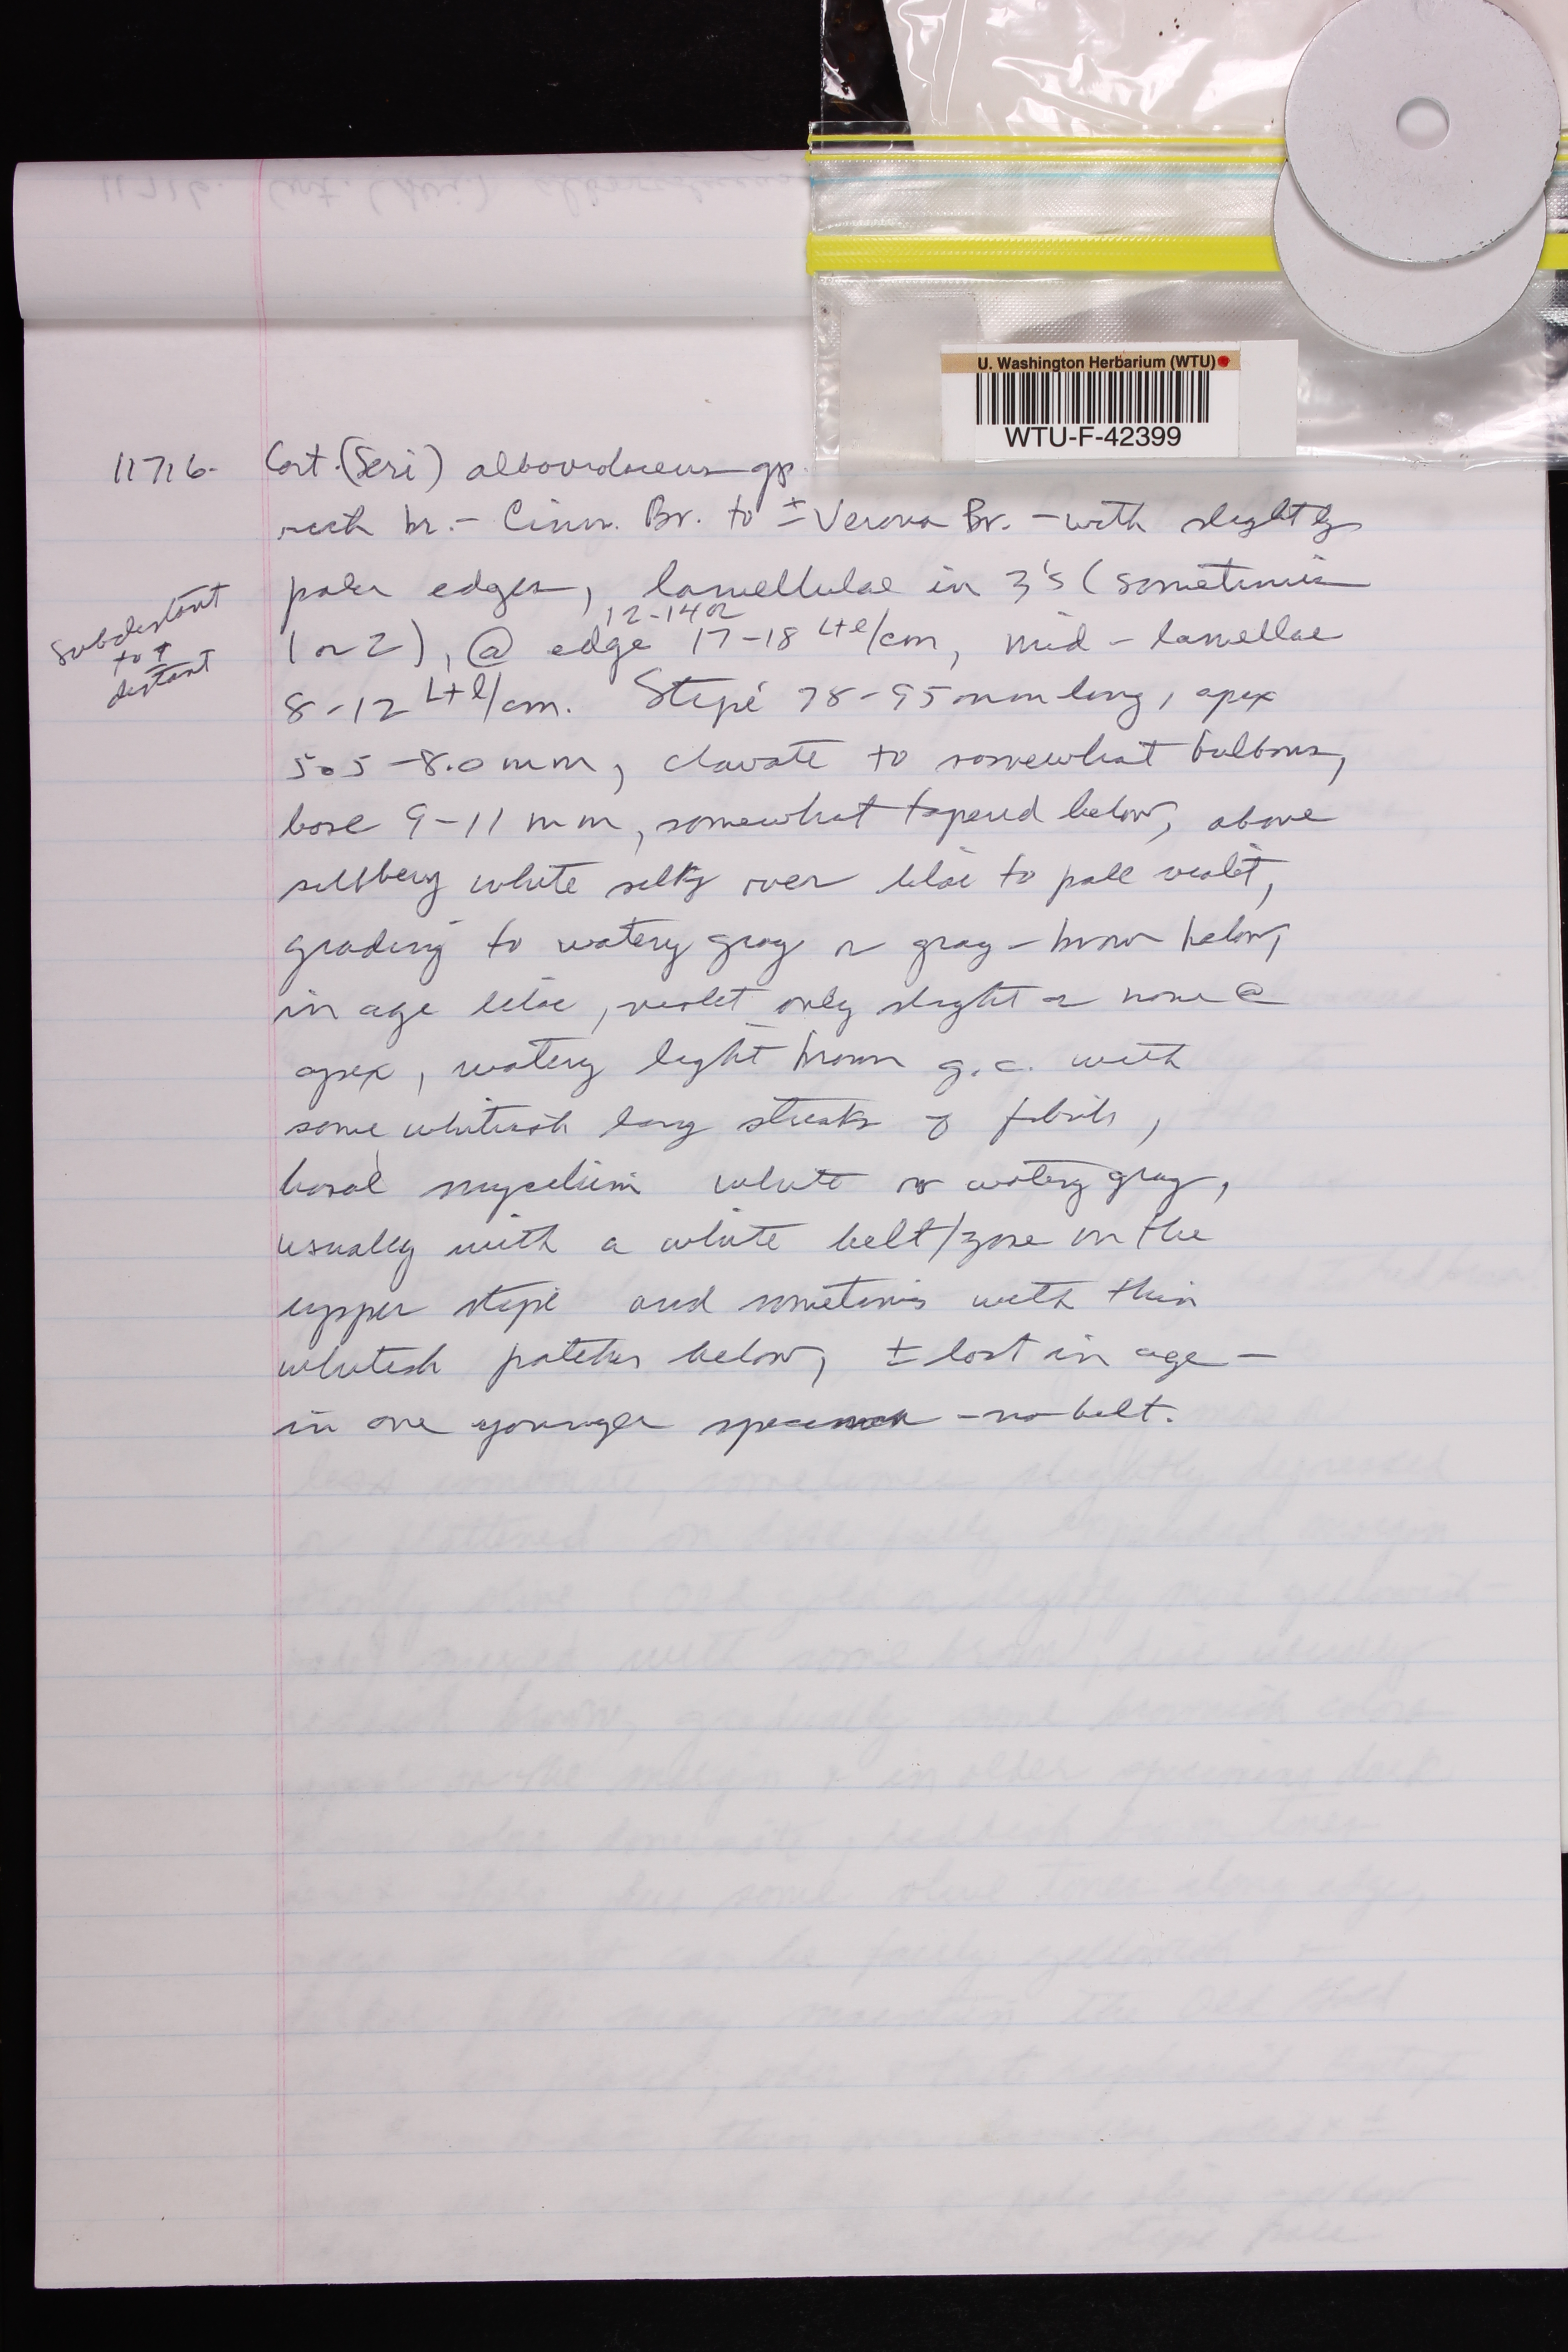 U. Washington Herbarium (WTU)
WTU-F-42399
11716. Cort. (Seri) alboviolaceus gp.
rich br. - Cinn. Br. to ± Verona Br. - with slightly
paler edges, lamellulae in 3's (sometimes
subdistant to ± distant
12-14 or
1 or 2), @ edge 17-18 L+l/cm, mid-lamellae
8-12 L+l/cm. Stipe 78-95 mm long, apex
5.5-8.0 mm, clavate to somewhat bulbous,
base 9-11 mm, somewhat tapered below, above
silvery white silky over lilac to pale violet,
grading to watery gray or gray-brown below,
in age lilac, violet only slight or none @
apex, watery light brown g.c. with
some whitish long streaks of fibrils,
basal mycelium white or watery gray,
usually with a white belt/zone on the
upper stipe and sometimes with thin
whitish patches below, ± lost in age -
in one younger specimen - no belt.